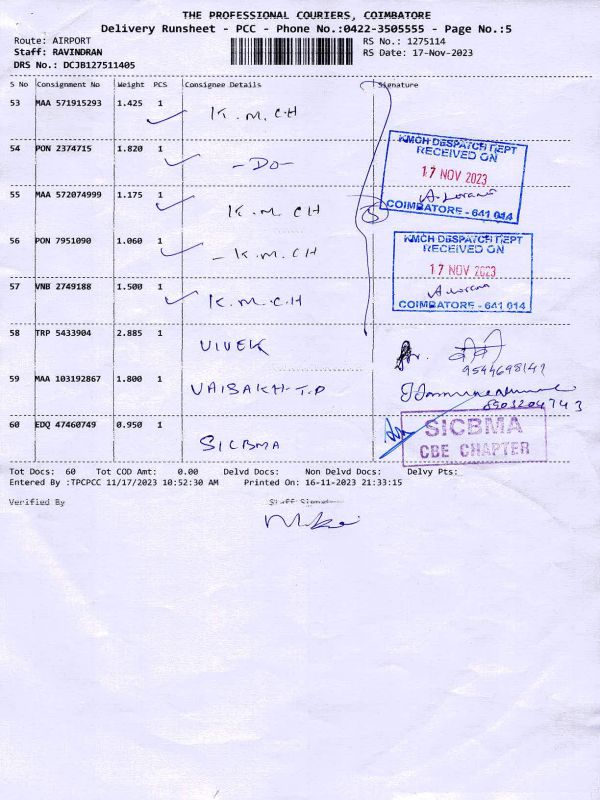 THE PROFESSIONAL COURIERS, COIMBATORE
Delivery Runsheet - PCC - Phone No.:0422-3505555 - Page No.:5
Route: AIRPORT RS No.: 1275114
Staff: RAVINDRAN RS Date: 17-Nov-2023
DRS No.: DCJB127511405
S No Consignment No Weight PCS Consignee Details Signature
53 MAA 571915293 1.425 1 K.M.C.H
54 PON 2374715 1.820 1 -DO-
KMCH DESPATCH DEPT
RECEIVED ON
17 NOV 2023
COIMBATORE - 641 014
55 MAA 572074999 1.175 1 K.M.CH 5
56 PON 7951090 1.060 1 - K.M.CH
KMCH DESPATCH DEPT
RECEIVED ON
17 NOV 2023
COIMBATORE - 641 014
57 VNB 2749188 1.500 1 K.M.C.H
58 TRP 5433904 2.885 1 VIVEK
59 MAA 103192867 1.800 1 VAISAKH-T.P
8903204743
60 EDQ 47460749 0.950 1 SICBMA
SICBMA
CBE CHAPTER
Tot Docs: 60 Tot COD Amt: 0.00 Delvd Docs: Non Delvd Docs: Delvy Pts:
Entered By :TPCPCC 11/17/2023 10:52:30 AM Printed On: 16-11-2023 21:33:15
Verified By Staff Signature